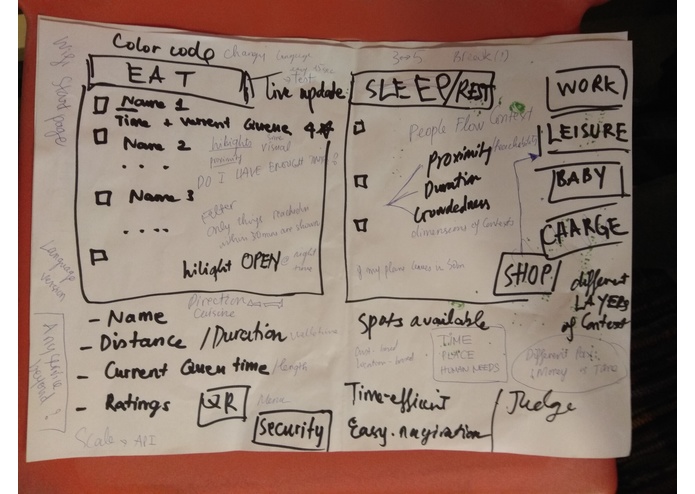 Color code
Changy Language
3 Break(!)
Wifi Start page
EAT
Live update
SLEEP/REST
WORK
Name 1
Time + current Queue
Name 2
hilights
visual
. . . .
DO I HAVE ENOUGH TIME?
Name 3
. . . .
Filter
Only things reachable
within 30mins are shown
hilight OPEN @ night
People Flow Context
Proximity/reachability
Duration
Crowdedness
dimensions of Contexts
LEISURE
BABY
CHARGE
SHOP
different
LAYERs
of Context
Language
version
Direction
Cuisine
- Name
- Distance / Duration
- Current Queu time /length
- Ratings
QR
Menu
Security
Scale API
Spots available
location-based
TIME
PLACE
HUMAN NEEDS
Time-efficient
Easy-navigation
/Judge